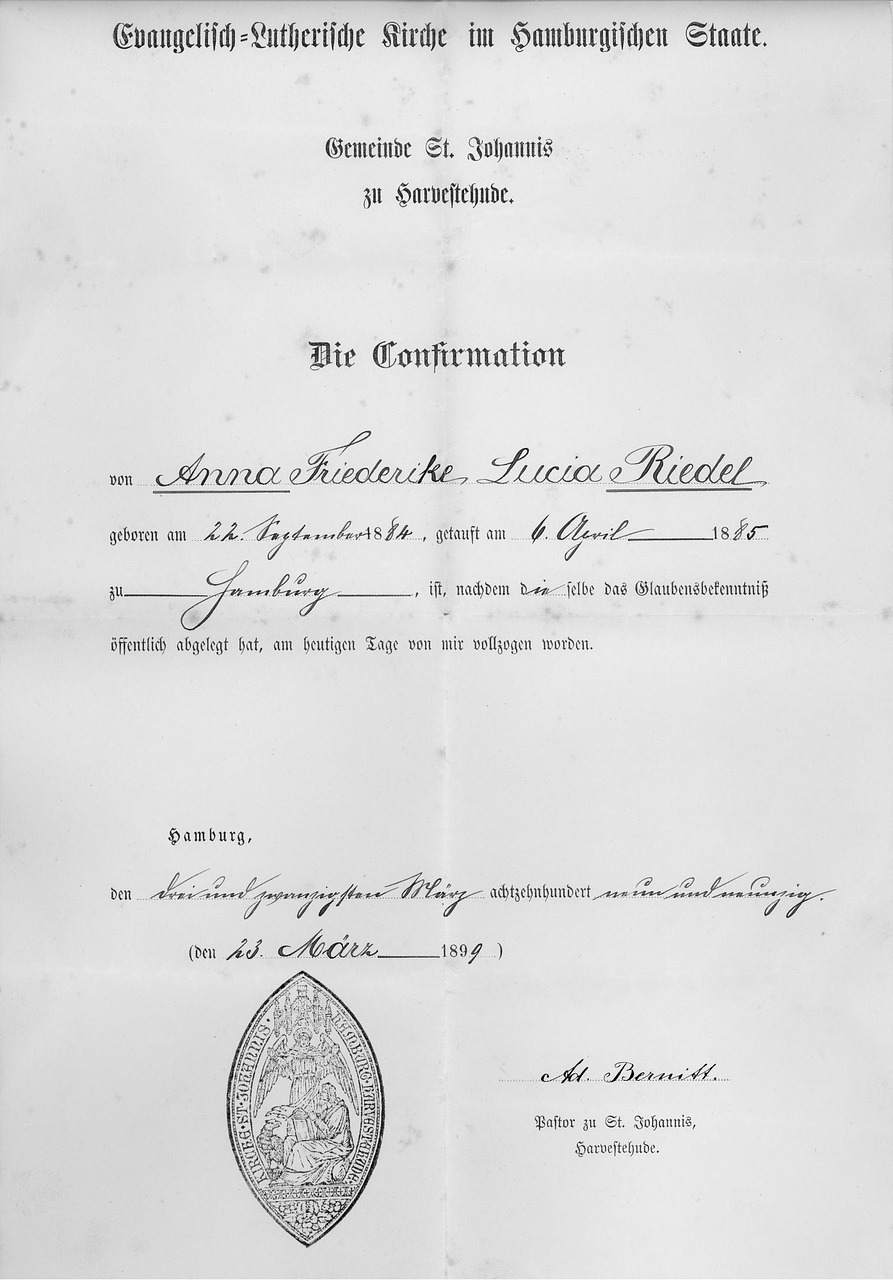 Evangelisch-Lutherische Kirche im Hamburgischen Staate.
Gemeinde St. Johannis
zu Harvestehude.
Die Confirmation
von Anna Friederike Lucia Riedel
geboren am 22. September 1884, getauft am 6. April 1885
zu Hamburg, ist, nachdem dieselbe das Glaubensbekenntniß
öffentlich abgelegt hat, am heutigen Tage von mir vollzogen worden.
Hamburg,
den drei und zwanzigsten März achtzehnhundert neun und neunzig.
(den 23. März 1899)
KIRCHE · ST · JOHANNIS · HAMBURG · HARVESTEHUDE
Ad. Bernitt.
Pastor zu St. Johannis,
Harvestehude.